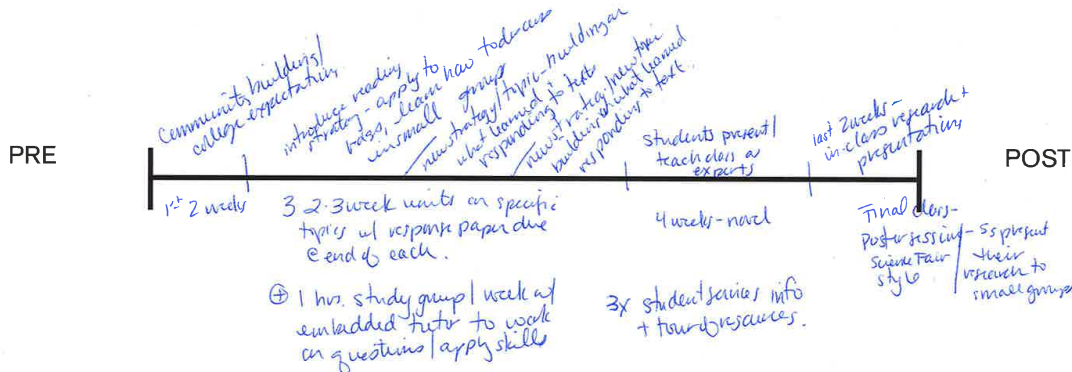 PRE
Community building/
college expectations
introduce reading
strategy - apply to
topics, learn how to discuss
in small groups
new strategy/topic - building on
what learned &
responding to texts
new strategy/new topic
building on what learned
responding to text.
students present/
teach class as
experts
last 2 weeks -
in-class research +
presentations
POST
1st 2 weeks
3 2-3 week units on specific
topics w/ response paper due
@ end of each.
4 weeks - novel
Final class -
Poster session -
Science Fair
style
Ss present
their
research to
small groups
⊕ 1 hrs. study group/week w/
embedded tutor to work
on questions/apply skills
3x student services info
+ tour of resources.